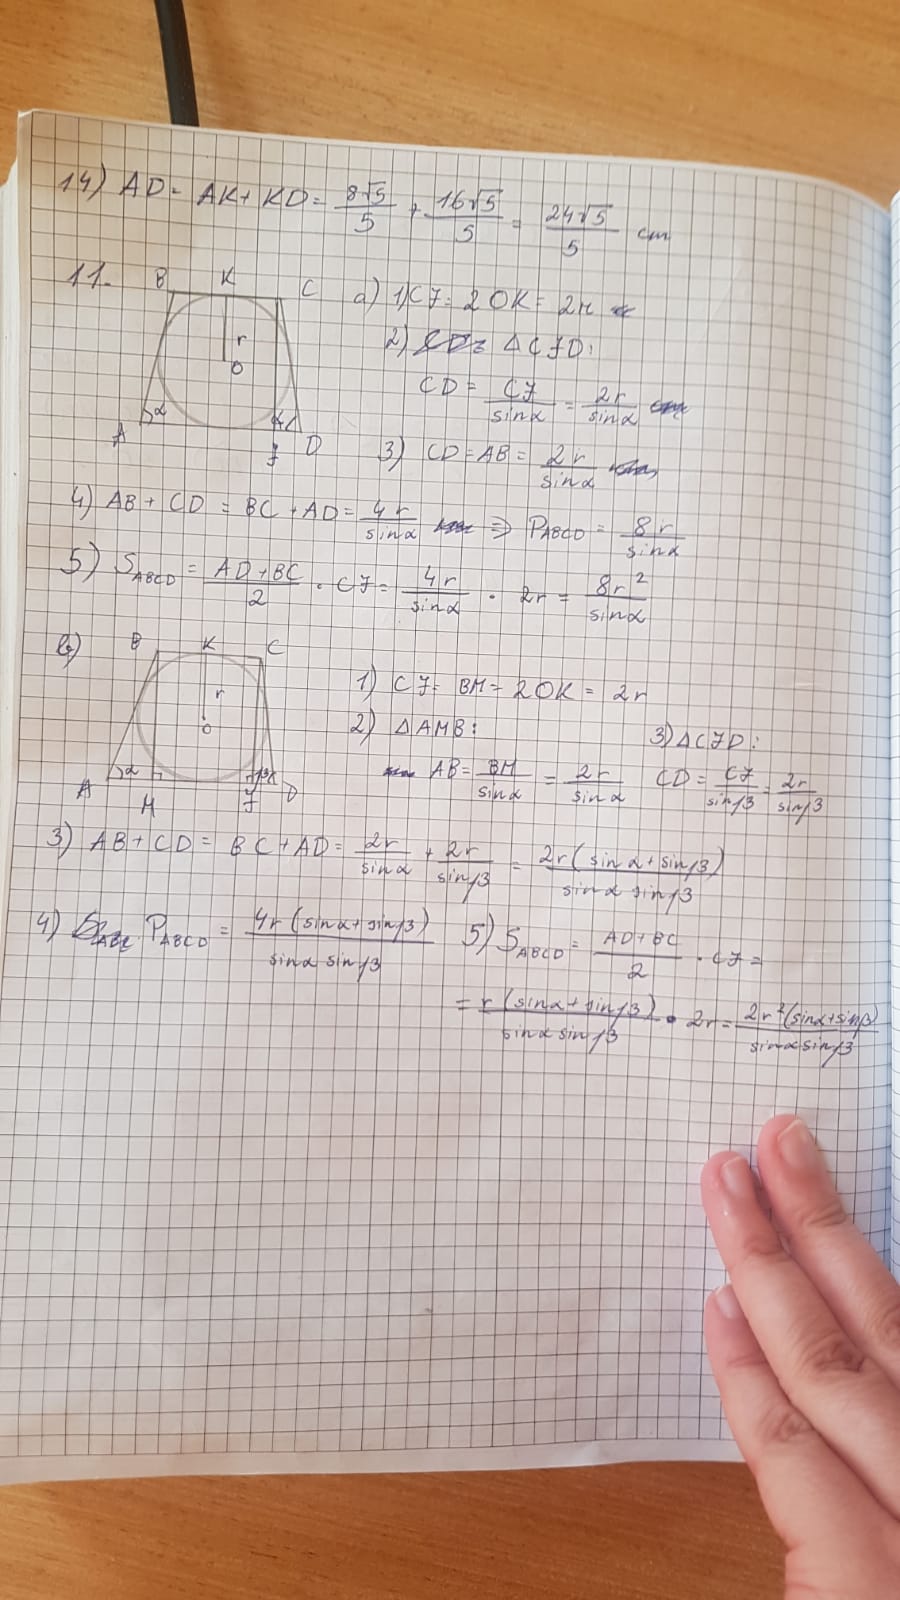 14) AD = AK + KD = 8√5/5 + 16√5/5 = 24√5/5 cm
11. B K C r O α α A J D
a) 1) CJ = 2OK = 2r
2) △CJD:
CD = CJ/sinα = 2r/sinα
3) CD = AB = 2r/sinα
4) AB + CD = BC + AD = 4r/sinα ⇒ P_ABCD = 8r/sinα
5) S_ABCD = (AD + BC)/2 · CJ = 4r/sinα · 2r = 8r²/sinα
b) B K C r O α β A M J D
1) CJ = BM = 2OK = 2r
2) △AMB: 3) △CJD:
AB = BM/sinα = 2r/sinα CD = CJ/sinβ = 2r/sinβ
3) AB + CD = BC + AD = 2r/sinα + 2r/sinβ = 2r(sinα + sinβ)/sinα sinβ
4) P_ABCD = 4r(sinα + sinβ)/sinα sinβ 5) S_ABCD = (AD + BC)/2 · CJ =
= r(sinα + sinβ)/sinα sinβ · 2r = 2r²(sinα + sinβ)/sinα sinβ